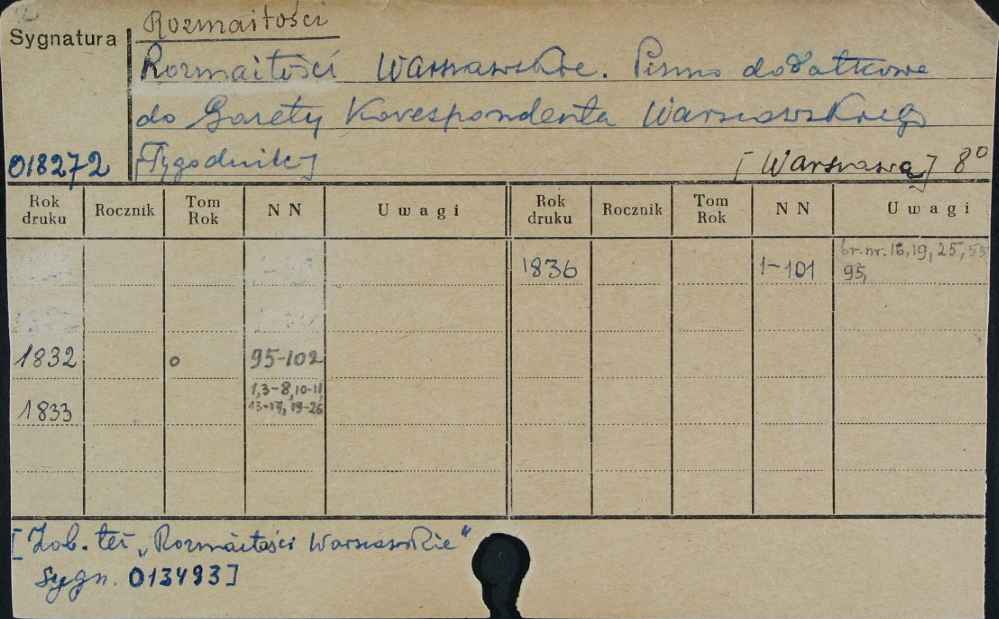 Rozmaitości
Sygnatura
Rozmaitości Warszawskie. Pismo dodatkowe
do Gazety Korespondenta Warszawskiego
018272 [Tygodnik] [Warszawa] 8°
Rok druku Rocznik Tom Rok NN Uwagi Rok druku Rocznik Tom Rok NN Uwagi
1836 1-101 br. nr. 16, 19, 25, 55
95,
1832 o 95-102
1833 1,3-8,10-11,
13-17, 19-26
[Zob. też „Rozmaitości Warszawskie"
sygn. 013493]